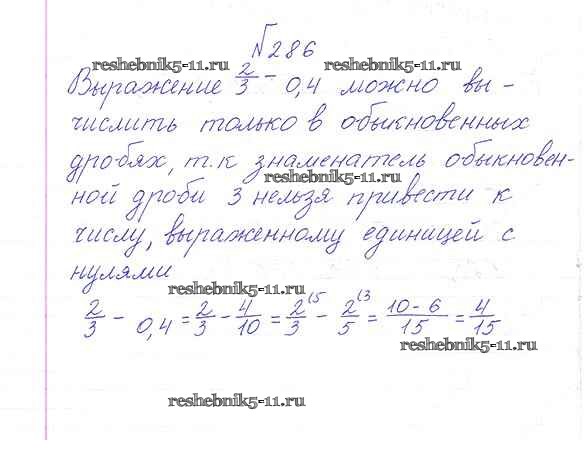 №286
reshebnik5-11.ru reshebnik5-11.ru
Выражение 2/3 - 0,4 можно вы-
числить только в обыкновенных
дробях, т.к знаменатель обыкновен-
reshebnik5-11.ru
ной дроби 3 нельзя привести к
числу, выраженному единицей с
нулями
reshebnik5-11.ru
2/3 - 0,4 = 2/3 - 4/10 = 2/3 (5 - 2/5 (3 = 10-6/15 = 4/15
reshebnik5-11.ru
reshebnik5-11.ru